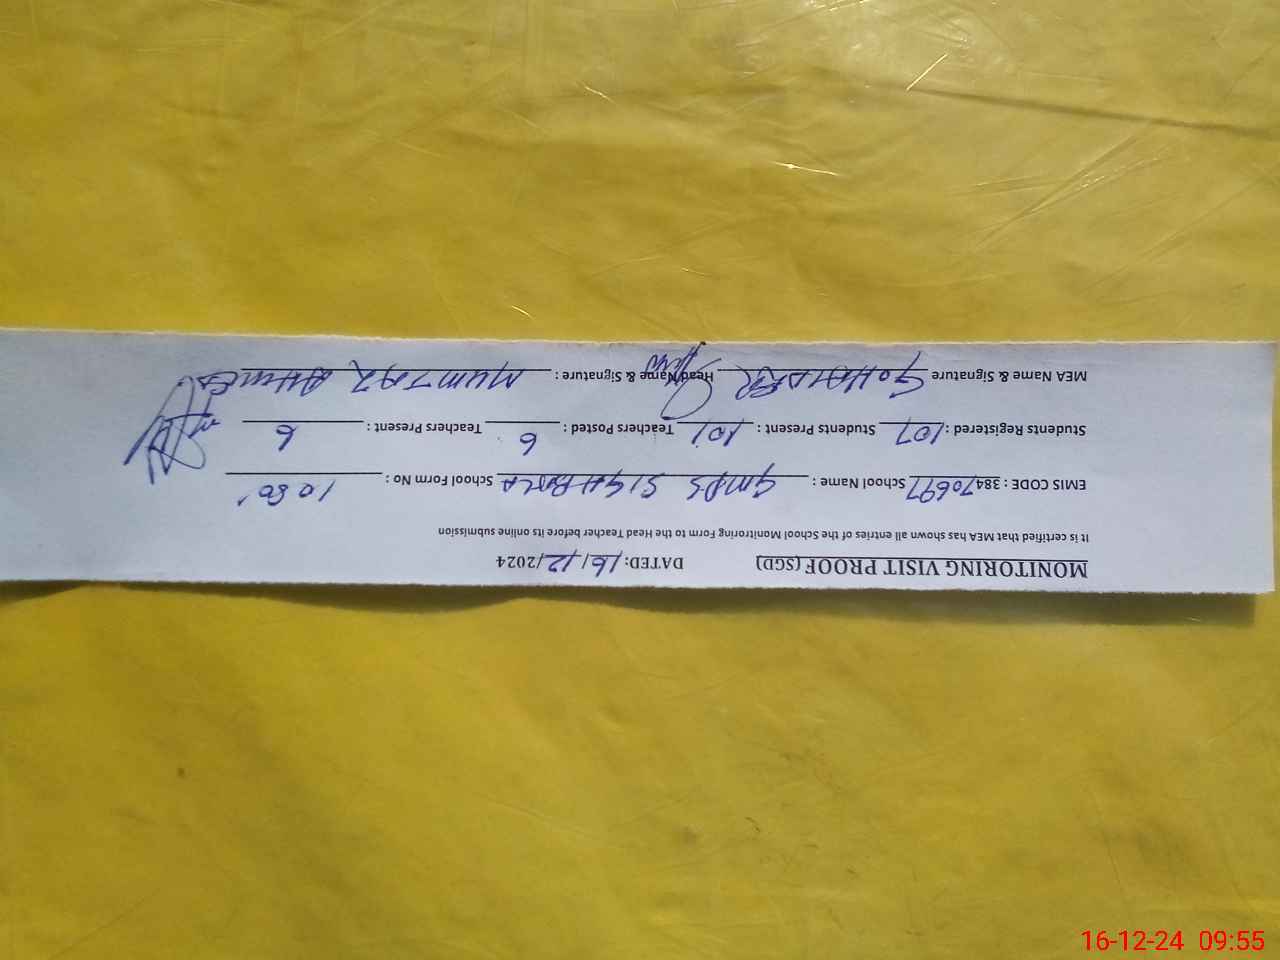 MONITORING VISIT PROOF (SGD) DATED: 16/12/2024
It is certified that MEA has shown all entries of the School Monitoring Form to the Head Teacher before its online submission
EMIS CODE : 38470697 School Name : GMPS School Form No :
Students Registered : 107 Students Present : 101 Teachers Posted : 6 Teachers Present : 6
MEA Name & Signature G.HAIDER Head Name & Signature : MUMTAZ AHMED
16-12-24 09:55